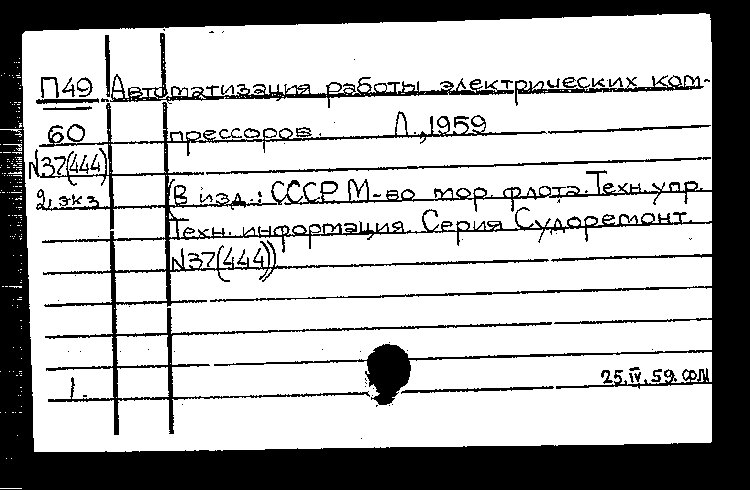 П49 Автоматизация работы электрических ком-
60 прессоров. Л., 1959
N37(444)
2 экз (В изд.: СССР М-во мор. флота. Техн. упр.
Техн. информация. Серия Судоремонт.
N37(444))
1. 25.IV.59.